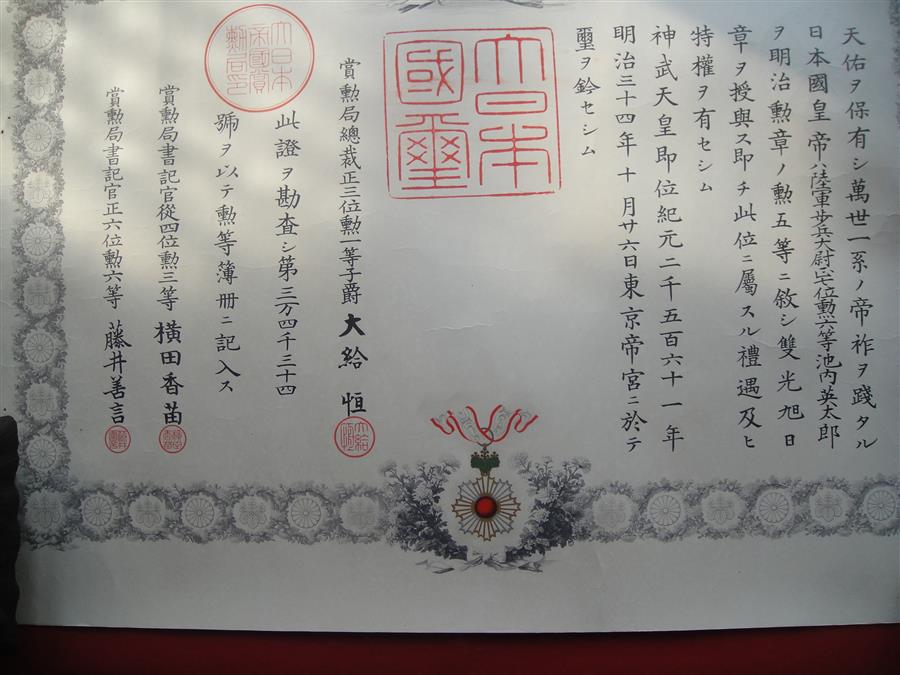 天佑ヲ保有シ萬世一系ノ帝祚ヲ踐タル
日本國皇帝ハ陸軍步兵大尉正七位勲六等池内英太郎
ヲ明治勲章ノ勲五等ニ敘シ雙光旭日
章ヲ授與ス即チ此位ニ屬スル禮遇及ヒ
特權ヲ有セシム
神武天皇即位紀元二千五百六十一年
明治三十四年十月廿六日東京帝宮ニ於テ
璽ヲ鈐セシム
大日本
國璽
賞勲局總裁正三位勲一等子爵大給恒
此證ヲ勘査シ第三万四千三十四
號ヲ以テ勲等簿册ニ記入ス
大日本
帝國賞
勲局印
賞勲局書記官從四位勲三等横田香苗
賞勲局書記官正六位勲六等藤井善言